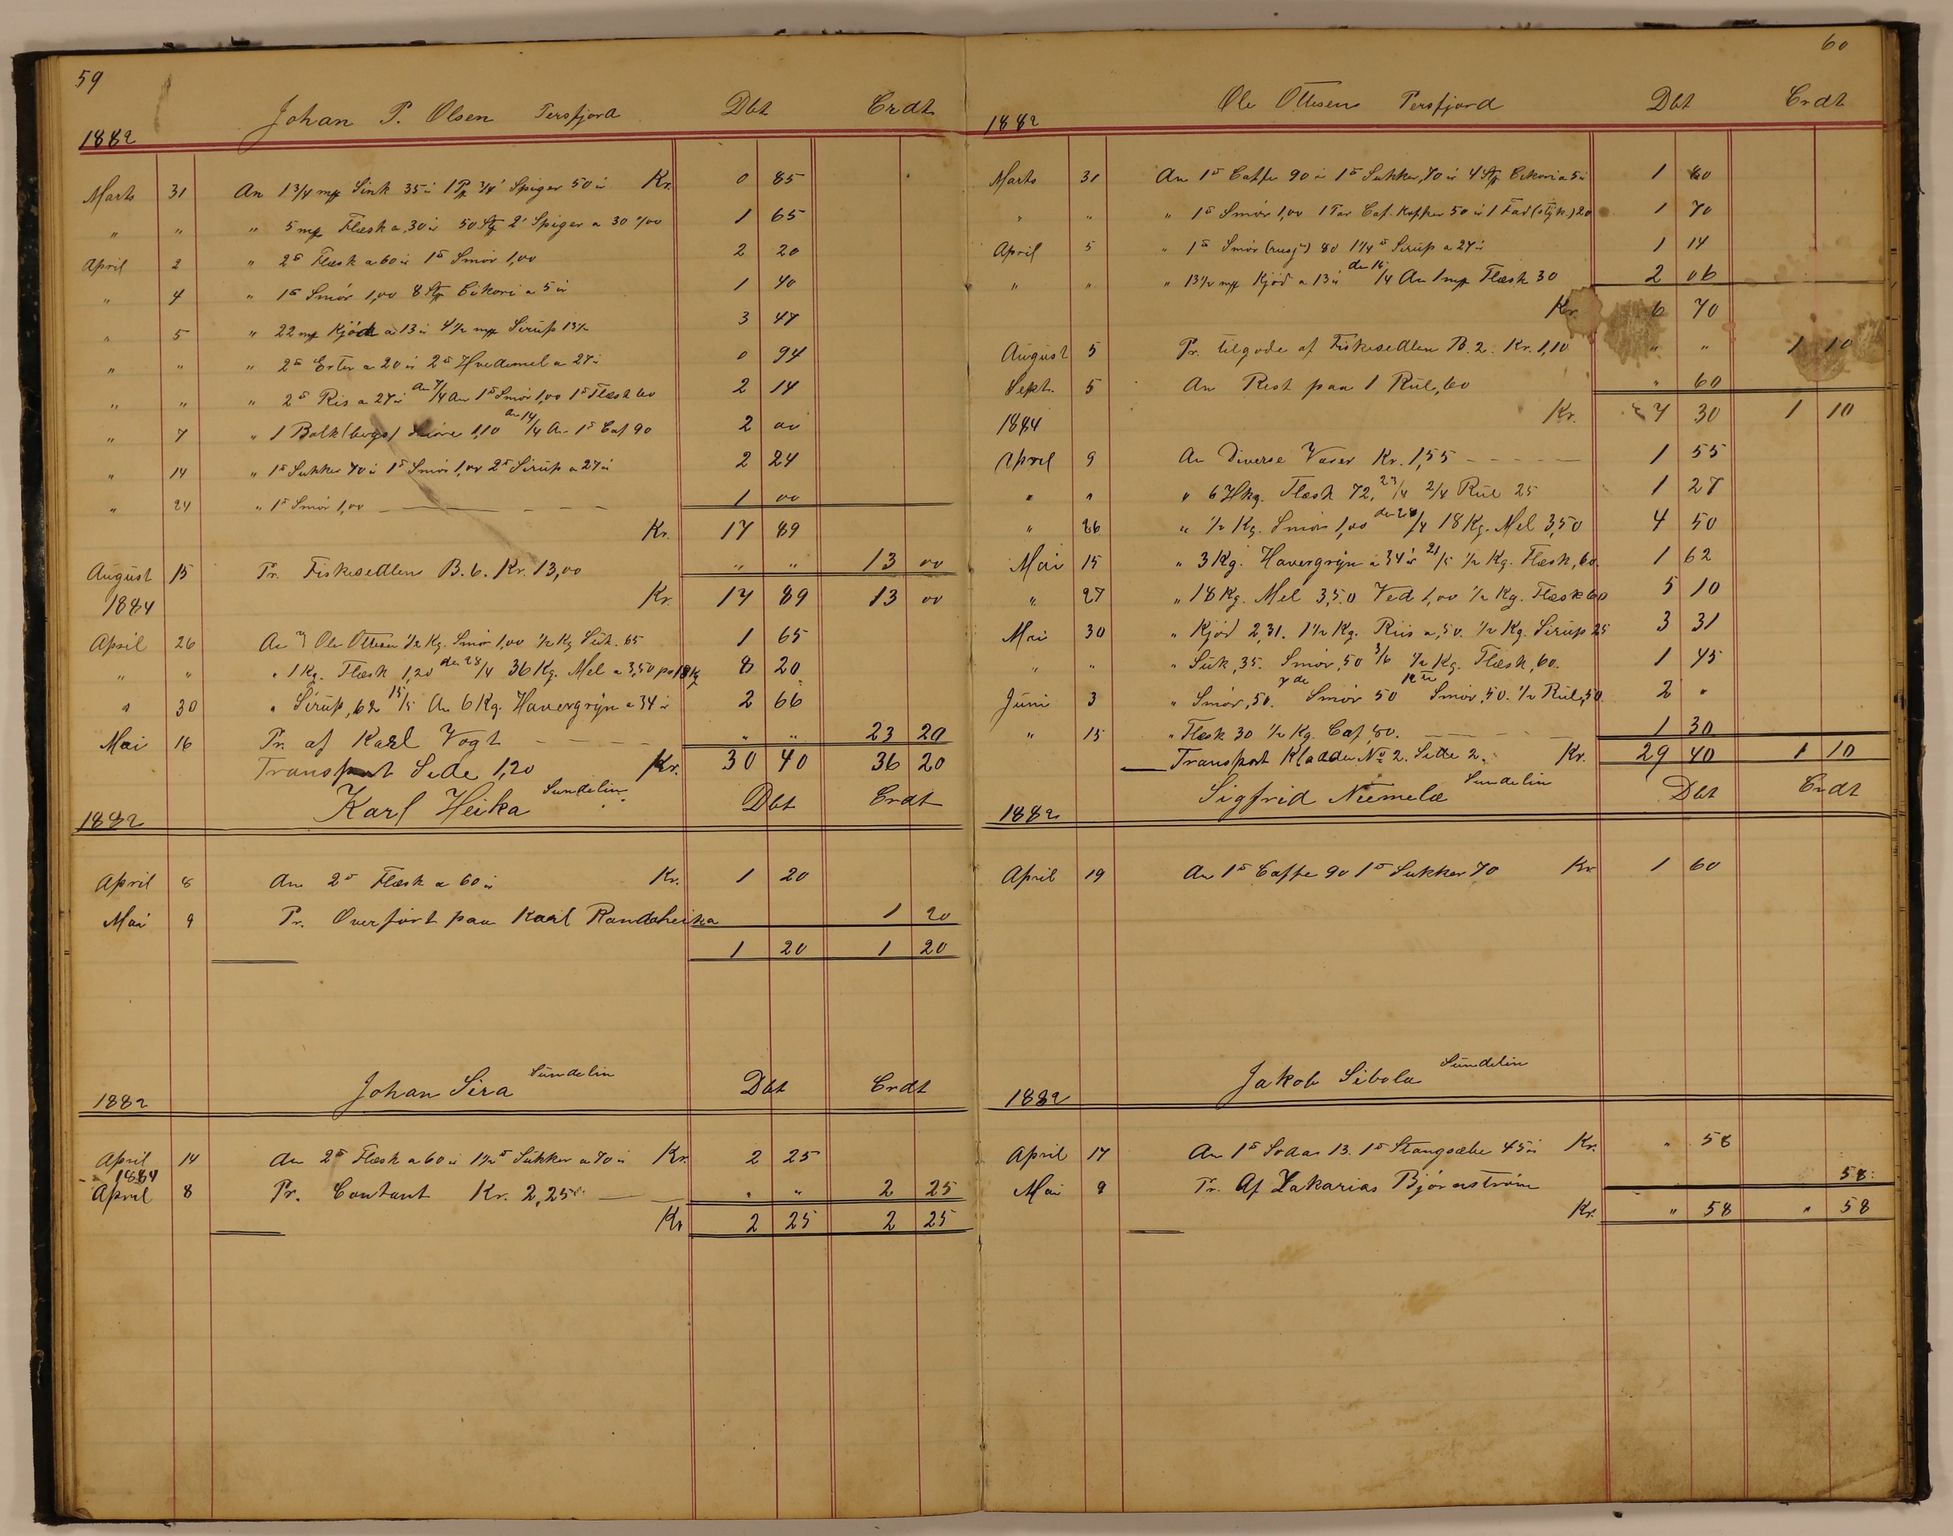 59
Johan P. Olsen Persfjord Dbt Crdt
1882
Marts 31 An 1 3/4 mp Sink 35 ø 1 Pk 3/4" Spiger 50 ø Kr. 0 85
" " " 5 mp Flæsk a 30 ø 50 Stk 2" Spiger a 30 %00 1 65
April 2 " 2 ℔ Flæsk a 60 ø 1 ℔ Smør 1,00 2 20
" 4 " 1 ℔ Smør 1,00 8 Stk Cikori a 5 ø 1 40
" 5 " 22 mp Kjød a 13 ø 4 1/2 mp Sirup 13 1/2 3 47
" " " 2 ℔ Erter a 20 ø 2 ℔ Hvedemel a 27 ø 0 94
" " " 2 ℔ Ris a 27 ø den 7/4 An 1 ℔ Smør 1,00 1 ℔ Flæsk 60 2 14
" 7 " 1 Balk 1,10 den 14/4 An 1 ℔ Caf 90 2 00
" 14 " 1 ℔ Sukker 70 ø 1 ℔ Smør 1,00 2 ℔ Sirup a 27 ø 2 24
" 24 " 1 ℔ Smør 1,00 1 00
Kr. 17 89
August 15 Pr. Fiskesedlen B. 6. Kr. 13,00 " " 13 00
1884 Kr. 17 89 13 00
April 26 An Ole Ottesen 1/2 Kg. Smør 1,00 1/2 Kg Suk. 65 1 65
" " " 1 Kg. Flæsk 1,20 den 28/4 36 Kg. Mel a 3,50 pr 18 Kg 8 20
" 30 " Sirup, 62 15/5 An 6 Kg. Havergryn a 34 ø 2 66
Mai 16 Pr. af Karl Vogt " " 23 20
Transport Side 1,20 Kr. 30 40 36 20
Karl Heika Sundelin Dbt Crdt
1882
April 8 An 2 ℔ Flæsk a 60 ø Kr. 1 20
Mai 9 Pr. Overført paa Karl Randaheika 1 20
1 20 1 20
Johan Sira Sundelin Dbt Crdt
1882
April 14 An 2 ℔ Flæsk a 60 ø 1 1/2 ℔ Sukker a 70 ø Kr. 2 25
1884
April 8 Pr. Contant Kr. 2,25 " " 2 25
Kr 2 25 2 25
60
Ole Ottesens Persfjord Dbt Crdt
1882
Marts 31 An 1 ℔ Caffe 90 ø 1 ℔ Sukker, 70 ø 4 Stk Cikori a 5 ø 1 80
" " " 1 ℔ Smør 1,00 1 Par Caf. Kopper 50 ø 1 Fad (styk.) 20 1 70
April 5 " 1 ℔ Smør 80 1 1/4 ℔ Sirup a 27 ø 1 14
" " " 13 1/2 mp Kjød a 13 ø den 15/4 An 1 mp Flæsk 30 2 06
Kr. 6 70
August 5 Pr. tilgode af Fiskesedlen B. 2. Kr. 1,10 " " 1 10
Sept. 5 An Rest paa 1 Rul, 60 " 60
Kr. 7 30 1 10
1884
April 9 An Diverse Varer Kr. 1,55 1 55
" " " 6 Hkg. Flæsk 72, 23/4 2/4 Rul 25 1 27
" 26 " 1/2 Kg. Smør 1,00 den 28/4 18 Kg. Mel 3,50 4 50
Mai 15 " 3 Kg. Havergryn a 34 ø 21/5 1/2 Kg. Flæsk, 60. 1 62
" 27 " 18 Kg. Mel 3,50 Ved 1,00 1/2 Kg. Flæsk 60 5 10
Mai 30 " Kjød 2,31. 1 1/2 Kg. Riis a, 50. 1/2 Kg. Sirup 25 3 31
" " " Suk, 35. Smør, 50 3/6 1/2 Kg. Flæsk, 60. 1 45
Juni 3 " Smør, 50. 7 de Smør 50 12 te Smør, 50. 1/2 Rul, 50 2 "
" 15 " Flæsk 30 1/2 Kg. Caf, 80. 1 30
Transport Kladde No 2. Side 2. Kr. 29 40 1 10
Sigfrid Niemela Sundelin Dbt Crdt
1882
April 19 An 1 ℔ Caffe 90 1 ℔ Sukker 70 Kr 1 60
Jakob Sibola Sundelin
1882
April 17 An 1 ℔ Sodaa 13. 1 ℔ Stangsæbe 45 ø Kr. " 58
Mai 9 Pr. Af Zakarias Bjørnstrøm 58
Kr. " 58 " 58